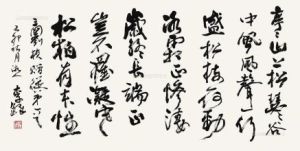 亭亭山上松瑟瑟谷
中風風聲一何
盛松枝一何勁
冰霜正慘淒
歲終長端正
豈不羅凝寒
松柏有本性
劉楨贈從弟
己卯